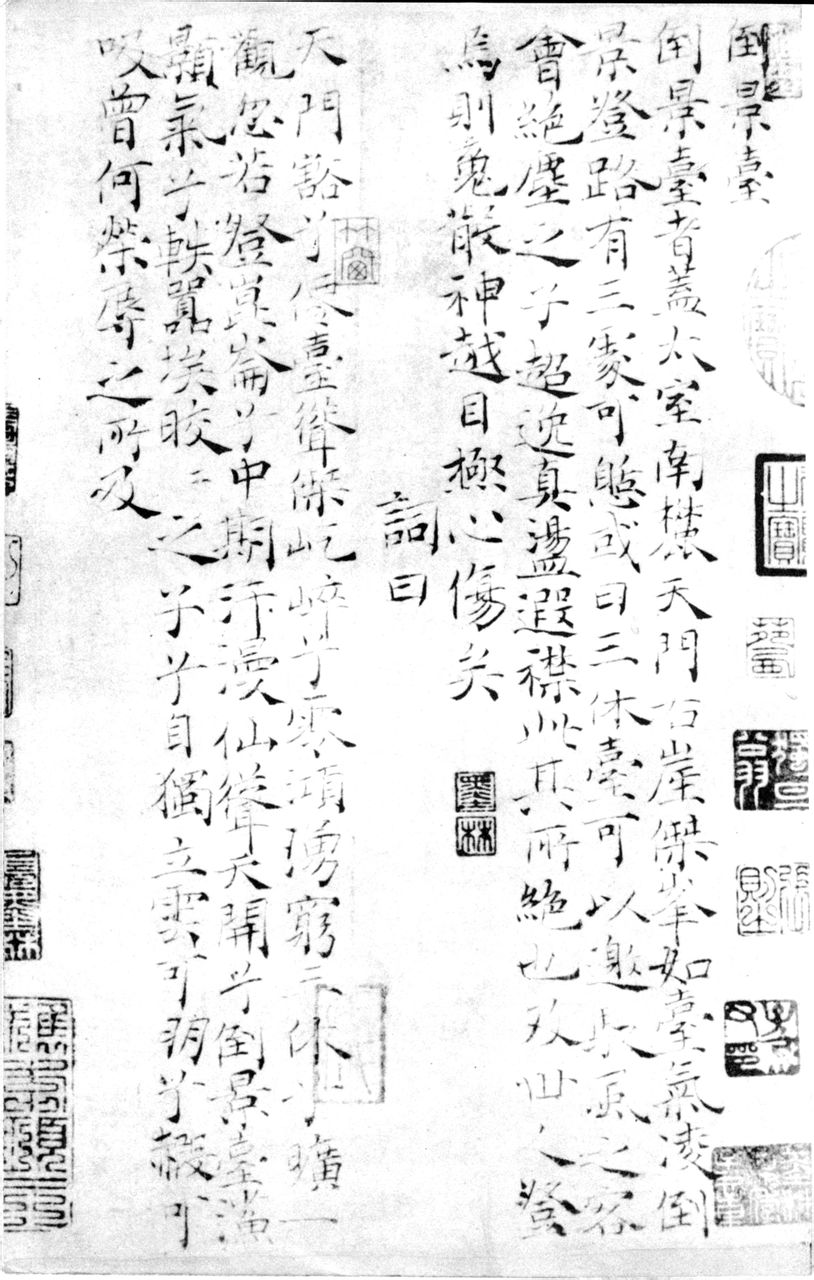 倒景臺
倒景臺者蓋太室南麓天門右崖傑峯如臺氣凌倒
景登路有三處可憩或曰三休臺可以邀馭風之客
會絕塵之子超逸真盪遐襟此其所絕也及世人登
焉則魂散神越目極心傷矣
詞曰
天門豁兮仙臺聳傑屹崒兮零澒湧窮三休兮曠一
觀忽若登崑崙兮中期汗漫仙聳天開兮倒景臺鶱
顥氣兮軼囂埃皎皎之子兮自獨立雲可朋兮霞可
吸曾何榮辱之所及
墨林